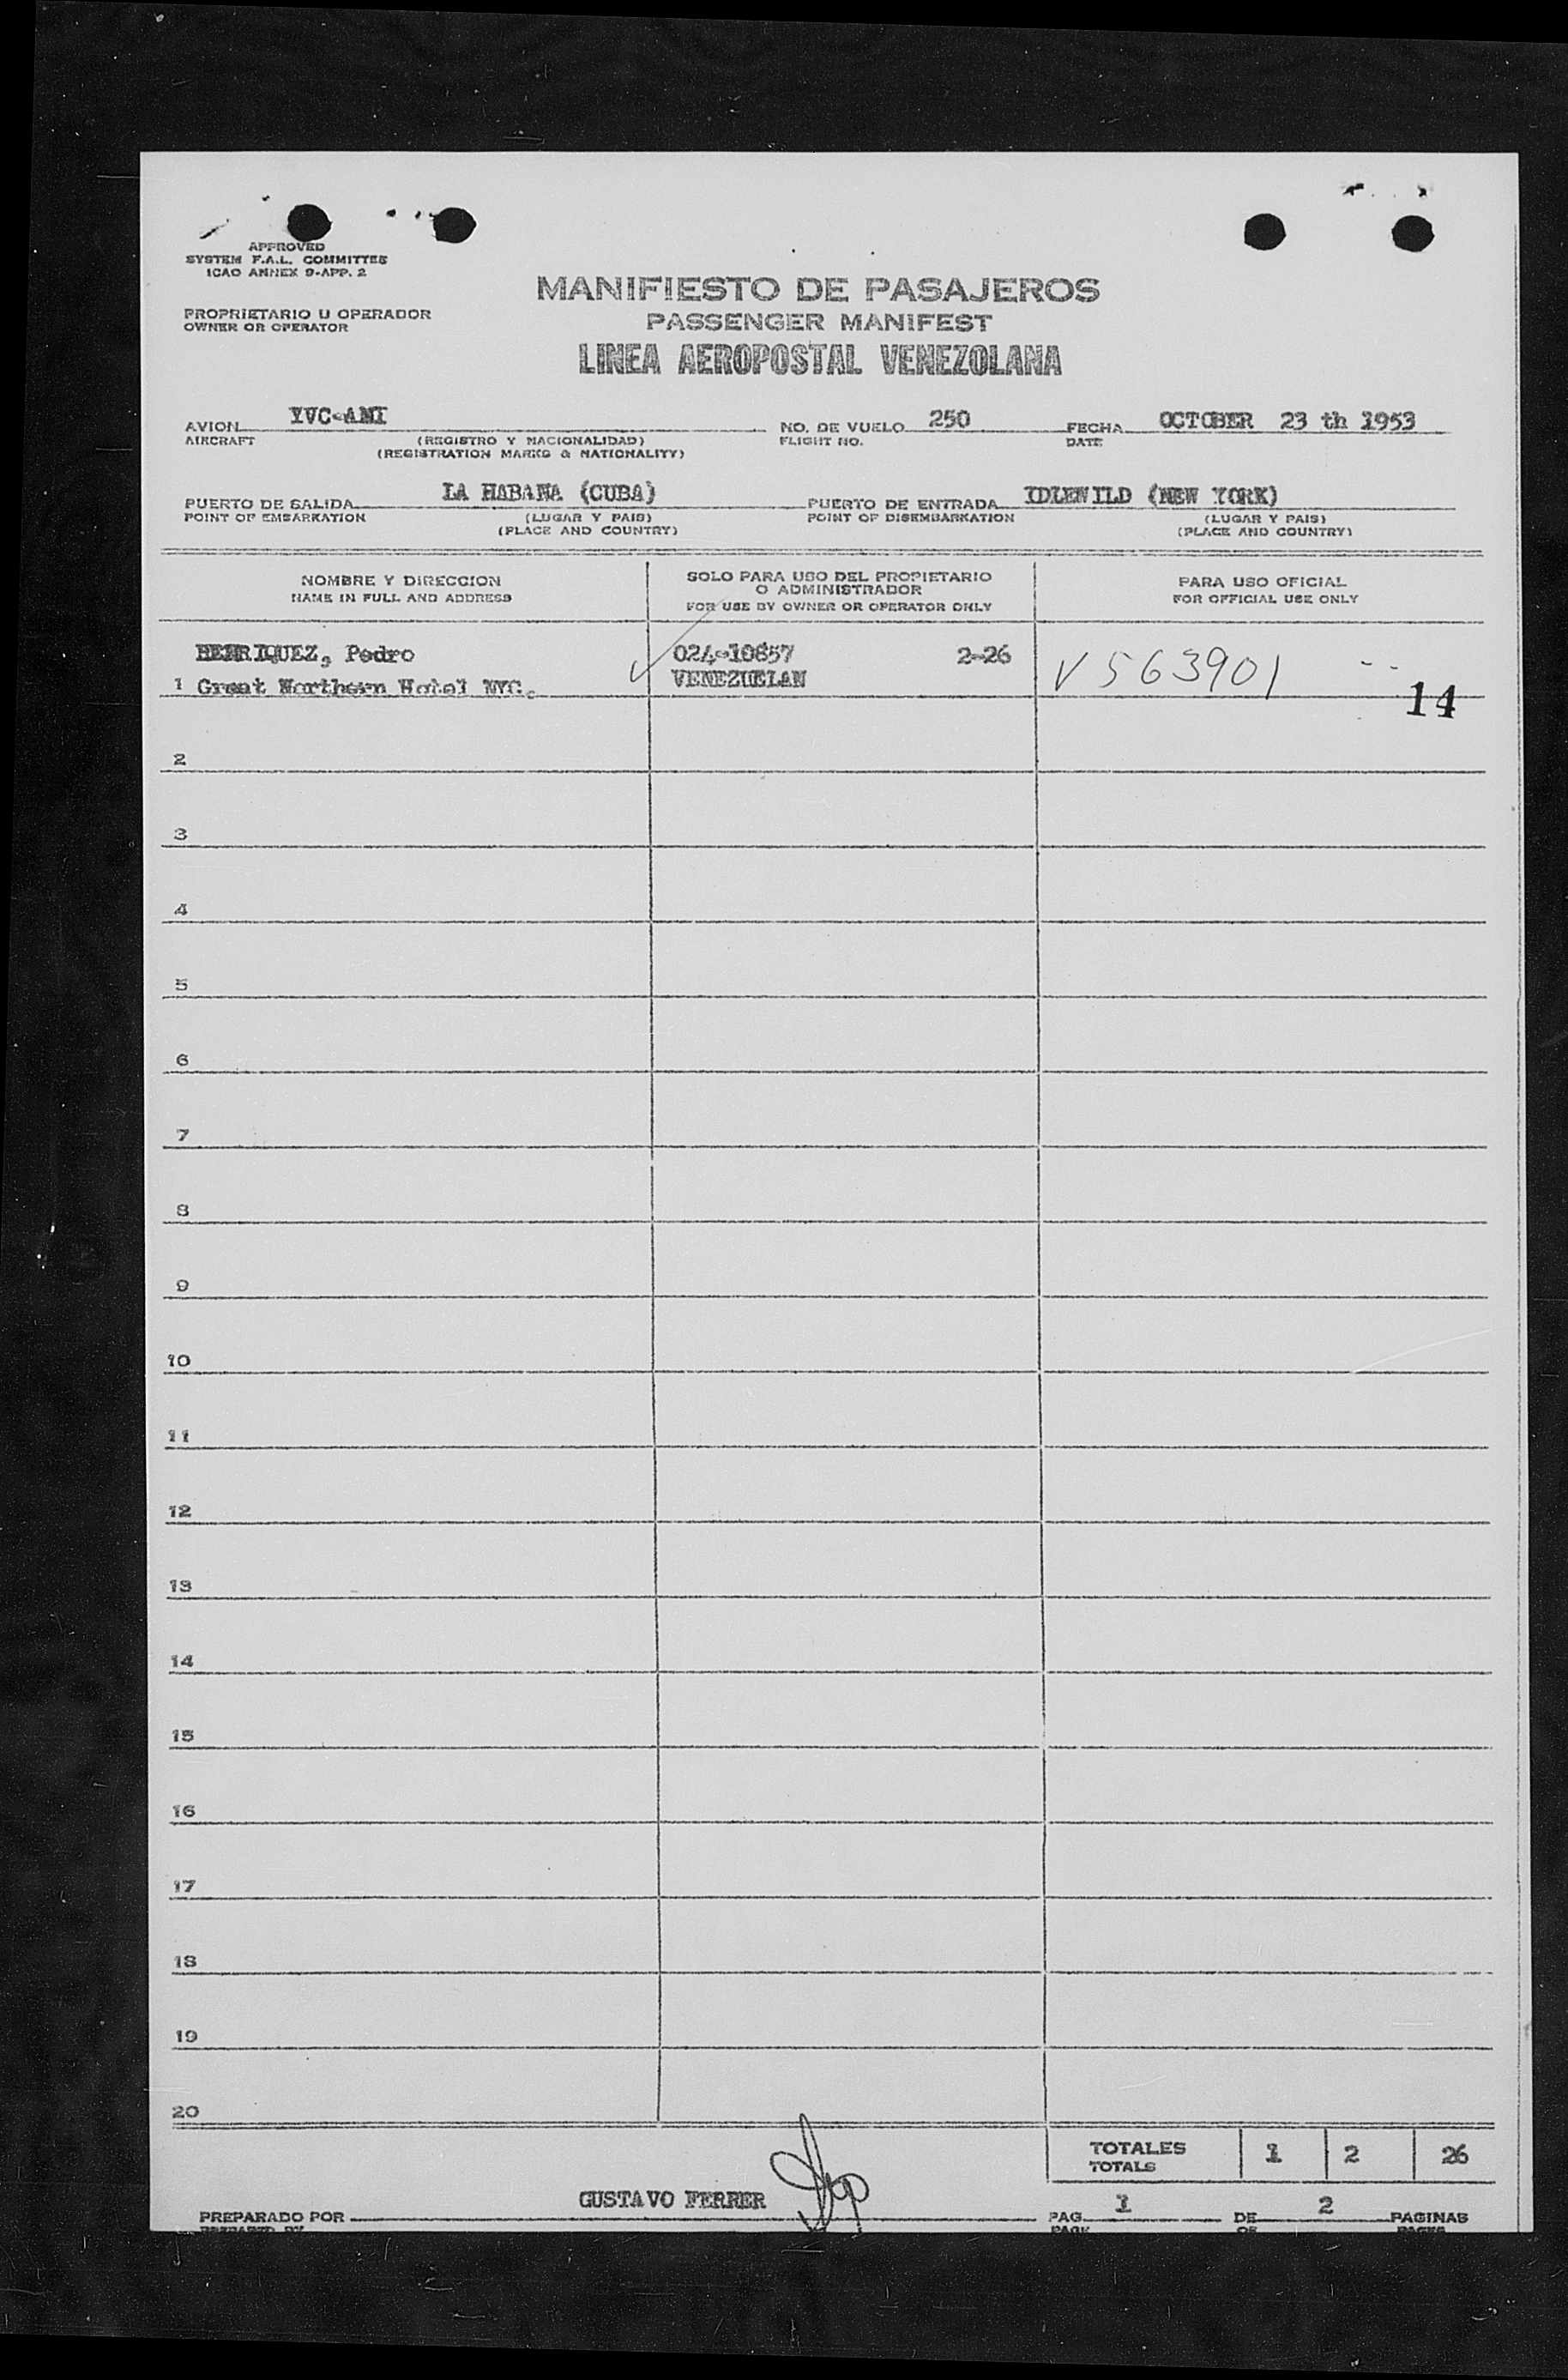 APPROVED
SYSTEM F.A.L. COMMITTEE
ICAO ANNEX 9-APP. 2
MANIFIESTO DE PASAJEROS
PROPRIETARIO U OPERADOR
OWNER OR OPERATOR
PASSENGER MANIFEST
LINEA AEROPOSTAL VENEZOLANA
AVION YVC-AMI NO. DE VUELO 250 FECHA OCTOBER 23 th 1953
AIRCRAFT (REGISTRO Y NACIONALIDAD) FLIGHT NO. DATE
(REGISTRATION MARKS & NATIONALITY)
PUERTO DE SALIDA LA HABANA (CUBA) PUERTO DE ENTRADA IDLEWILD (NEW YORK)
POINT OF EMBARKATION (LUGAR Y PAIS) POINT OF DISEMBARKATION (LUGAR Y PAIS)
(PLACE AND COUNTRY) (PLACE AND COUNTRY)
NOMBRE Y DIRECCION
NAME IN FULL AND ADDRESS
SOLO PARA USO DEL PROPIETARIO
O ADMINISTRADOR
FOR USE BY OWNER OR OPERATOR ONLY
PARA USO OFICIAL
FOR OFFICIAL USE ONLY
HENRIQUEZ, Pedro 024-10857 2-26 V 563901
1 Great Northern Hotel NYC. VENEZUELAN 14
2
3
4
5
6
7
8
9
10
11
12
13
14
15
16
17
18
19
20
TOTALES 1 2 26
TOTALS
PREPARADO POR GUSTAVO FERRER PAG. 1 DE 2 PAGINAS
PREPARED BY PAGE OF PAGES